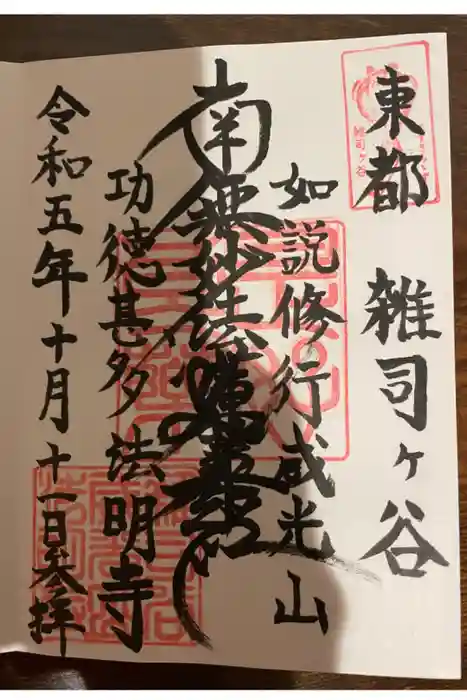 東都 雑司ヶ谷
如説修行威光山
南無妙法蓮華経
功徳甚多法明寺
令和五年十月十一日参拝
雑司ヶ谷